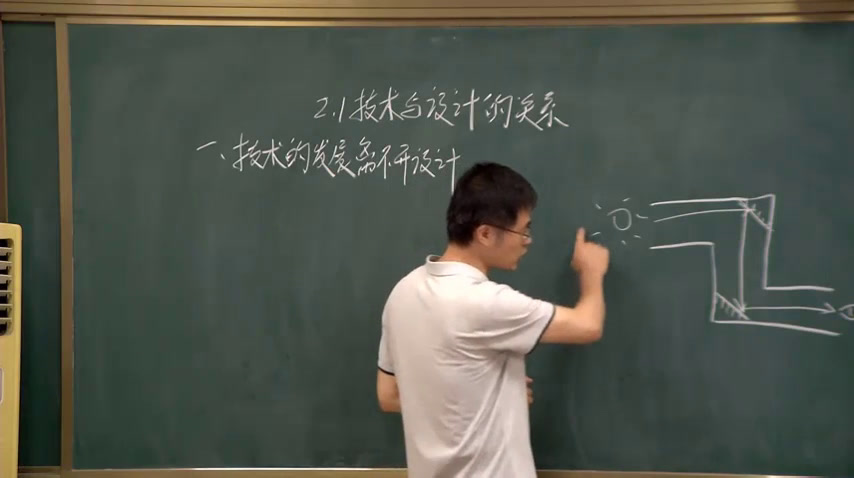 2.1技术与设计的关系
一、技术的发展离不开设计